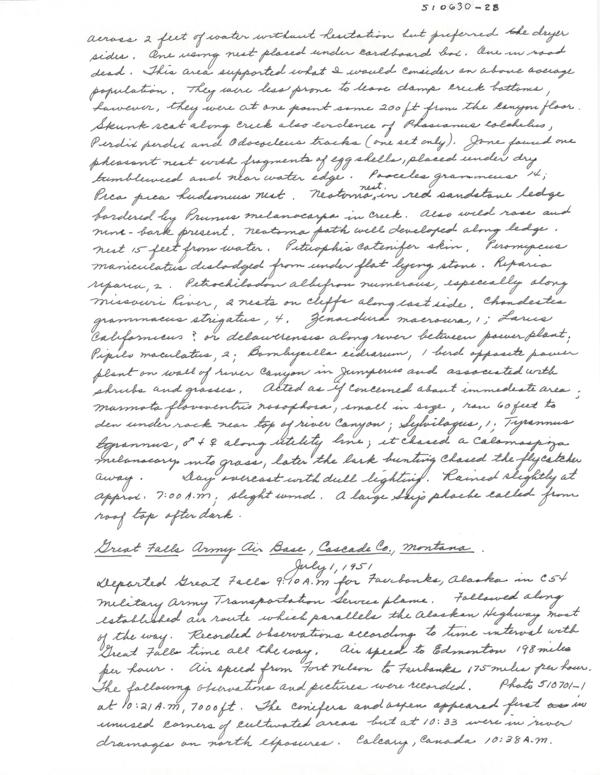 510630-2B
across 2 feet of water without hesitation but preferred the dryer
sides. One using nest placed under cardboard box. One in road
dead. This area supported what I would consider an above average
population. They were less prone to leave damp creek bottoms,
however, they were at one point some 200 ft from the canyon floor.
Skunk scat along creek also evidence of Phasianus colchicus,
Perdix perdix and Odocoileus tracks (one set only). Jone found one
pheasant nest with fragments of egg shells, placed under dry
tumbleweed and near water edge. Pooecetes gramineus 14;
Pica pica hudsonius nest. Neotoma nest, in red sandstone ledge
bordered by Prunus melanocarpa in Creek. Also wild rose and
nine-bark present. Neotoma path well developed along ledge.
nest 15 feet from water. Pituophis catenifer skin. Peromyscus
maniculatus dislodged from under flat lying stone. Riparia
riparia, 2. Petrochelodon albifron numerous, especially along
Missouri River, 2 nests on cliffs along east side. Chondestes
grammacus strigatus, 4. Zenaidura macroura, 1; Larus
Californicus ? or delawarensis along river between power plant;
Pipilo maculatus, 2; Bombycilla cedrorum, 1 bird opposite power
plant on wall of river Canyon in Juniperus and associated with
shrubs and grasses. Acted as if concerned about immediate area;
Marmota flaviventris nosophora, small in size, ran 60 feet to
den under rock near top of river Canyon; Sylvilagus, 1; Tyrannus
tyrannus, ♂ + ♀ along utility line; it chased a Calamospiza
melanocorys into grass, later the lark bunting chased the flycatcher
away. Day overcast with dull lighting. Rained slightly at
approx. 7:00 A.M; slight wind. A large Say's phoebe called from
roof top after dark.
Great Falls Army Air Base, Cascade Co., Montana.
July 1, 1951
Departed Great Falls 9:10 A.M for Fairbanks, Alaska in C54
Military Army Transportation Service plane. Followed along
established air route which parallels the Alaskan Highway most
of the way. Recorded observations according to time interval with
Great Falls time all the way. Air speed to Edmonton 198 miles
per hour. Air speed from Fort Nelson to Fairbanks 175 miles per hour.
The following observations and pictures were recorded. Photo 510701-1
at 10:21 A.M, 7000 ft. The conifers and aspen appeared first in
unused corners of cultivated areas but at 10:33 were in river
drainages on north exposures. Calgary, Canada 10:38 A.M.